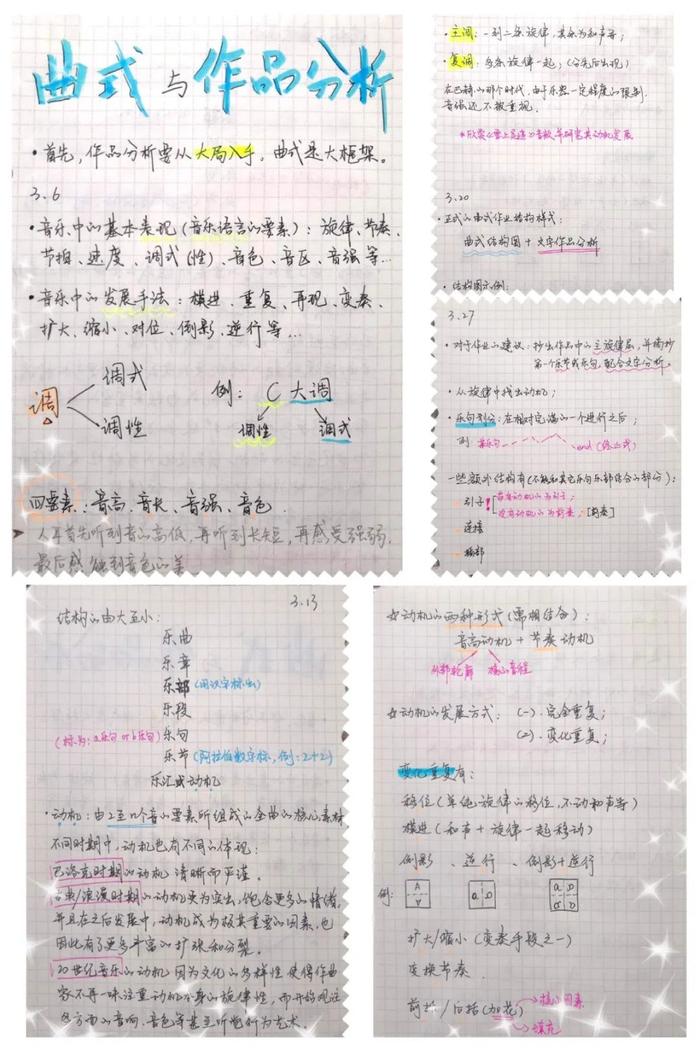 曲式与作品分析
·首先，作品分析要从大局入手，曲式是大框架。
3.6
·音乐中的基本表现（音乐语言的要素）：旋律、节奏、
节拍、速度、调式（性）、音色、音区、音强等…
·音乐中的发展手法：模进、重复、再现、变奏、
扩大、缩小、对位、倒影、逆行等…
调
调式
调性
例：C大调
调性
调式
四要素：音高、音长、音强、音色.
人耳首先听到音的高低，再听到长短，再感受强弱，
最后感触到音色的美
·主调：一到二条旋律，其余为和声等；
·复调：多条旋律一起；（分先后出现）
在巴赫的那个时代，由于乐器一定程度的限制，
音强还不被重视.
3.20
·正式的曲式作业结构样式：
曲式结构图+文字作品分析
·结构图示例：
3.27
·对于作业的建议：抄出作品中的主旋律层，并摘抄
第一个乐节或乐句，配合文字分析，
·从旋律中找出动机；
·乐句划分：在相对完满的一个进行之后；
例
某乐句
end（终止式）
一些额外结构有（不能和其它乐句乐部结合的部分）：
引子
有音动机的为引子；
没有动机的为前奏；[前奏]
连接
3.13
结构的由大至小：
乐曲
乐章
乐部（用汉字标出）
乐段
乐句
（标为：a乐句 or b乐句）
乐节（阿拉伯数字标，例：2+2）
乐汇或动机
·动机：由2至n个音的要素所组成的全曲的核心素材
不同时期中，动机也有不同的体现：
巴洛克时期的动机清晰而严谨。
古典/浪漫时期的动机更为突出，饱含更多的情绪，
并且在之后发展中，动机成为极其重要的因素，也
因此有了更多丰富的扩张和分裂。
20世纪音乐的动机因为文化的多样性使得作曲
家不再一味注重动机本身的旋律性，而开始关注
各方面的音响、音色等甚至听觉行为艺术.
动机的两种形式（需相结合）：
音高动机+节奏动机
外部轮廓
核心音程
动机的发展方式：（一）.完全重复；
（2）.变化重复；
变化重复有：
移位（单纯旋律的移位，不动和声等）
模进（和声+旋律一起移动）
倒影、逆行、倒影+逆行
例：
扩大/缩小（变奏手段之一）
变换节奏.
前括/后括（加花）
核心因素
填充